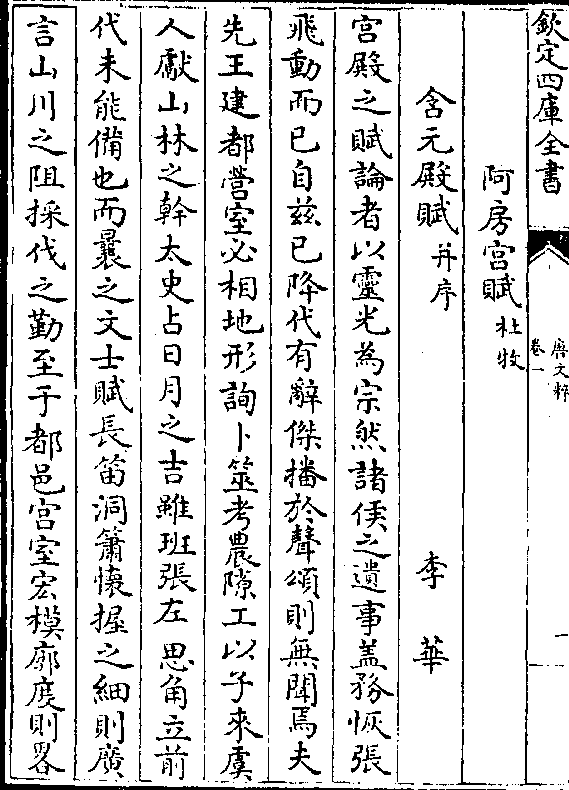 欽定四庫全書
唐文粹
卷一
一
阿房宫賦杜牧
含元殿賦并序 李華
宫殿之賦論者以靈光為宗然諸侯之遺事盖務恢張
飛動而已自兹已降代有辭傑播於聲頌則無聞焉夫
先王建都營室必相地形詢卜筮考農隙工以子來虞
人獻山林之幹太史占日月之吉雖班張左思角立前
代未能備也而曩之文士賦長笛洞簫懐握之細則廣
言山川之阻採伐之勤至于都邑宫室宏模廓度則畧